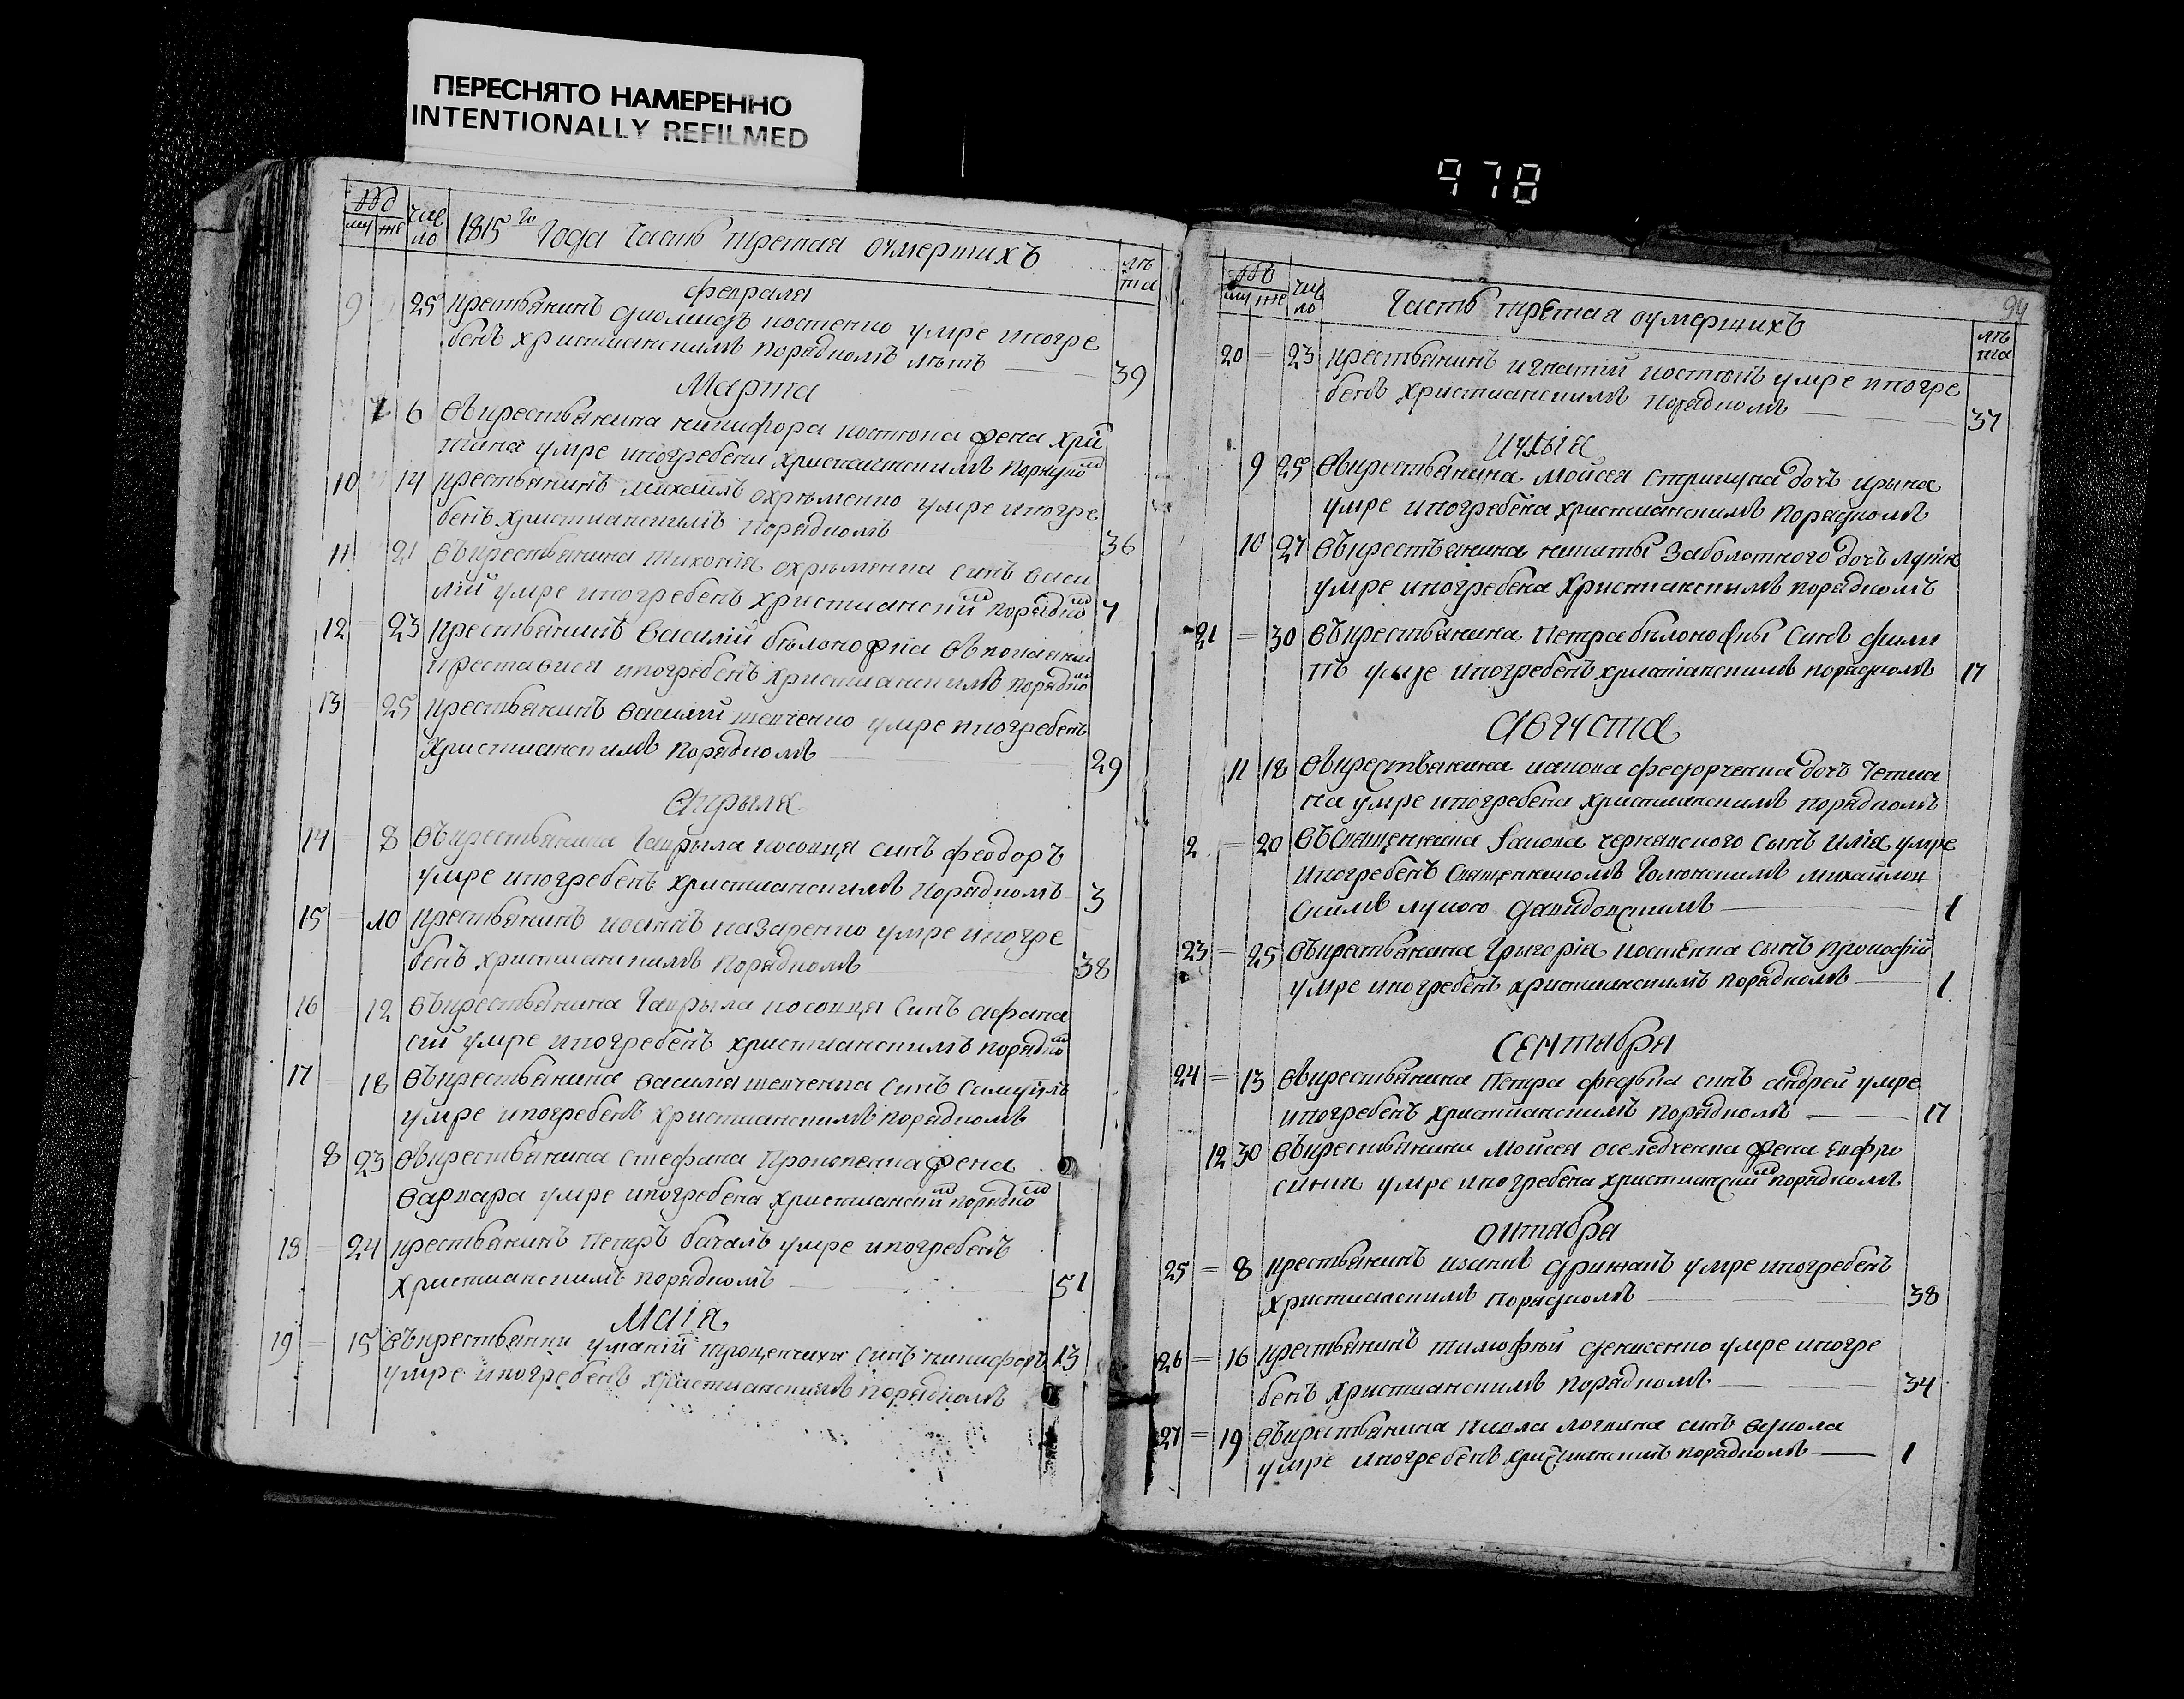 ПЕРЕСНЯТО НАМЕРЕННО
INTENTIONALLY REFILMED
978
1815 го Года Часть третая оумершихъ
чис ло
лѣ та
февраля
9 25 крестьянинъ Диомидъ костенко умре ипогре
бенъ християнскимъ порядкомъ лѣтъ 39
Марта
7 6 Въкрестьянина никифора жена хри
тина умре ипогребена християнскимъ порядко м
10 14 крестьянинъ михаилъ охрѣменко умре ипогре
бенъ християнскимъ порядкомъ 36
11 21 Въкрестьянина тихонія охрѣменка синъ васи
лій умре ипогребенъ християнски м порядко м 4
12 23 крестьянинъ василій бѣлоножка
преставися ипогребенъ християнскимъ порядко м
13 25 крестьянинъ василий шевченко умре ипогребенъ
християнскимъ порядкомъ 29
Апрыля
14 8 Въкрестьянина Гаврыла косовця синъ феодоръ
умре ипогребенъ християнскимъ порядкомъ 3
15 10 крестьянинъ иоаннъ назаренко умре ипогре
бенъ християнскимъ порядкомъ 38
16 12 Въкрестьянина Гаврыла косовця синъ афана
сий умре ипогребенъ християнскимъ порядко м
17 18 Въкрестьянина василия шевченка синъ самуилъ
умре ипогребенъ християнскимъ порядкомъ
8 23 Въкрестьянина стефана Прокопенка жена
варвара умре ипогребена християнски м порядко м
18 24 крестьянинъ Петръ бачалъ умре ипогребенъ
християнскимъ порядкомъ 51
Маія
19 15 Въкрестьянки синъ никифоръ 13
умре ипогребенъ християнскимъ порядкомъ
94
чис ло
Часть третая оумершихъ
лѣ та
20 23 крестьянинъ игнатий умре ипогре
бенъ християнскимъ порядкомъ 37
Иулыя
9 25 Въкрестьянина Мойсея дочъ ирына
умре ипогребена християнскимъ порядкомъ
10 27 Въкрестьянина никиты Заболотного дочъ
умре ипогребена християнскимъ порядкомъ
21 30 Въкрестьянина Петра бѣлоножки синъ фили
пъ умре ипогребенъ християнскимъ порядкомъ 17
Августа
11 18 Въкрестьянина иакова федорченка дочъ Тетиа
на умре ипогребена християнскимъ порядкомъ
2 20 Въсвященника Іакова чернявского сынъ илія умре
ипогребенъ священникомъ михайлов
скимъ лукою Давидовскимъ 1
23 25 Въкрестьянина Григорія костенка сынъ прокофій
умре ипогребенъ християнскимъ порядкомъ 1
Сентября
24 13 Въкрестьянина Петра синъ андрей умре
ипогребенъ християнскимъ порядкомъ 17
12 30 Въкрестьянина Мойсея оселедченка жена евфро
синия умре ипогребена християнски м порядкомъ
октября
25 8 крестьянинъ иоаннъ умре ипогребенъ
християнскимъ порядкомъ 38
26 16 крестьянинъ тимофѣй денисенко умре ипогре
бенъ християнскимъ порядкомъ 34
27 19 Въкрестьянина Павла логвина синъ
умре ипогребенъ християнскимъ порядкомъ 1